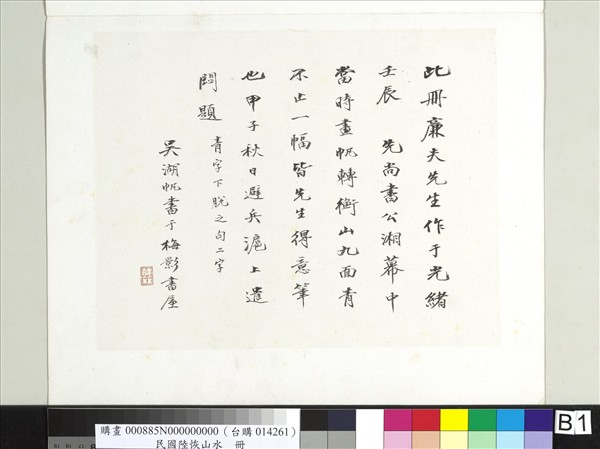 此冊廉夫先生作于光緒
壬辰 先尚書公湘幕中
當時畫帆轉衡山九面青
不止一幅皆先生得意筆
也甲子秋日避兵滬上遣
悶題 青字下脫之句二字
吳湖帆書于梅影書屋
購畫 000885N000000000 ( 台購 014261 )
民國陸恢山水 冊
B1